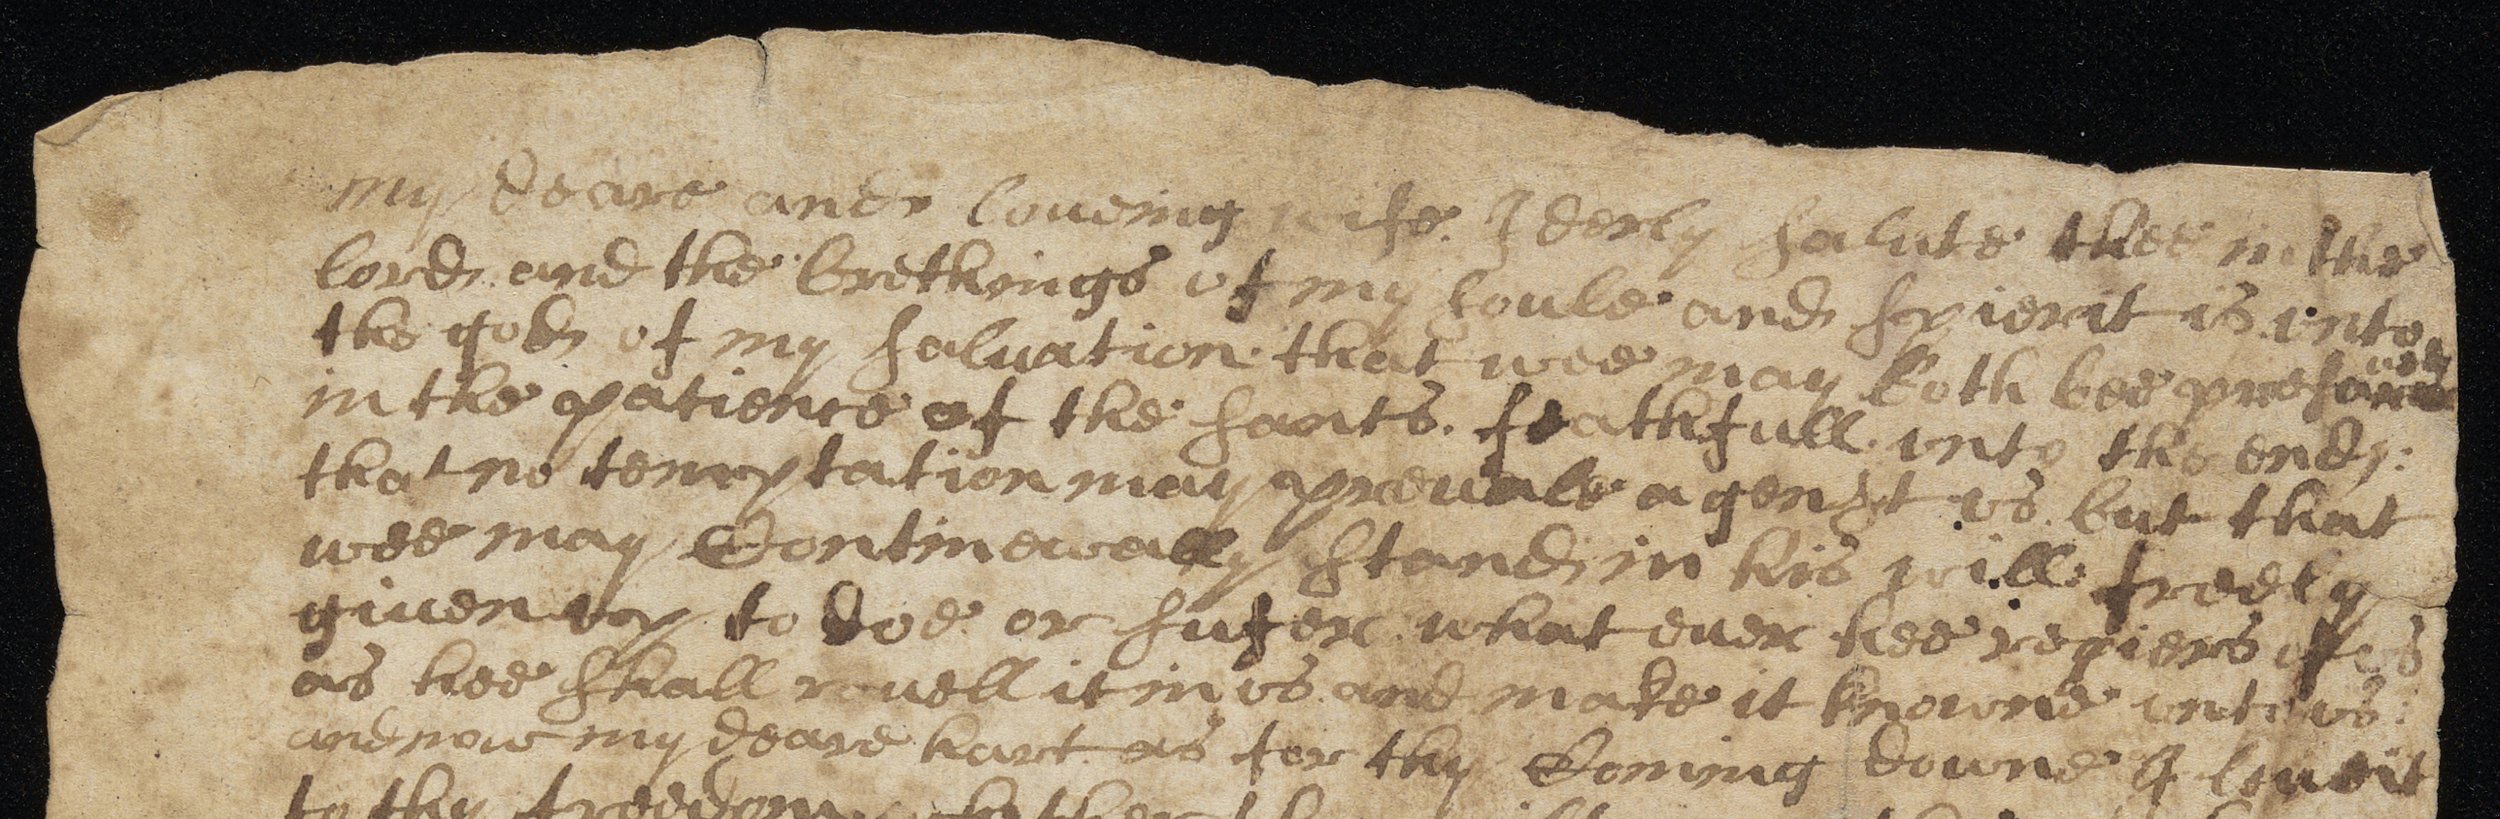 my deare and loueing wife. I derly salute thee in the
lord. and the brethings of my soule and spierit is vnto
the god of my saluation. that wee may both bee presarued
in the patience of the sants. feathfull vnto the end:
that no temptation may preuale agenst vs. but that
wee may Continewally stand in his will freely
giuen vp to doe or sufer what euer hee requiers of vs
as hee shall reuell it in vs and make it knowne vnto vs:
and now my deare hart as for thy Coming downe I leaue it
to thy freedom